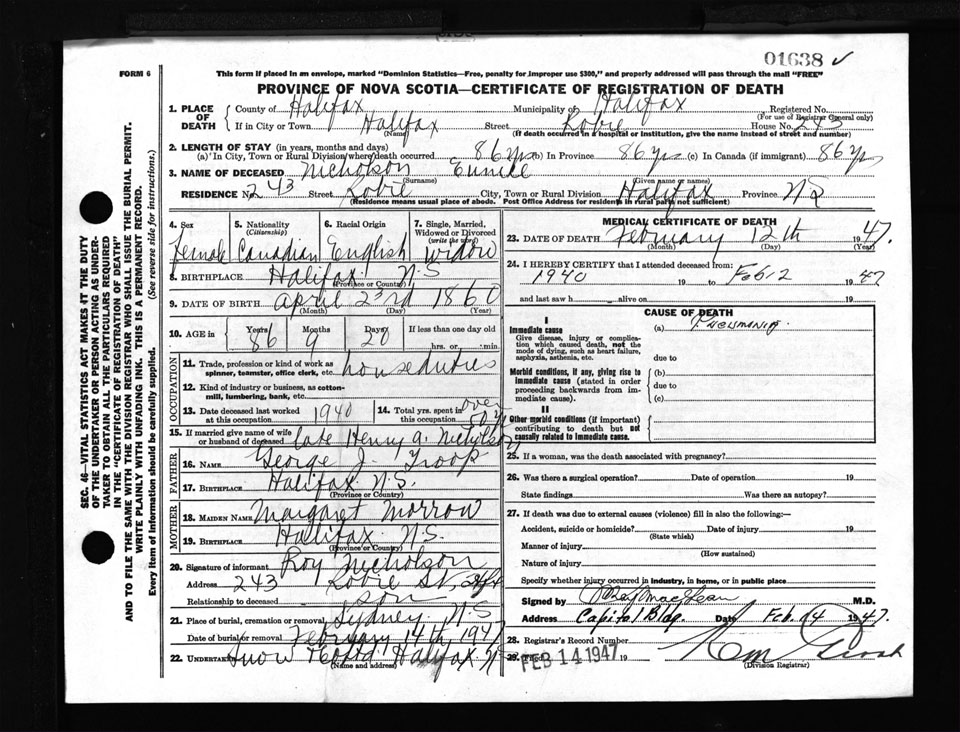 01638 ✓
FORM 6
This form if placed in an envelope, marked "Dominion Statistics—Free, penalty for improper use $300," and properly addressed will pass through the mail "FREE"
PROVINCE OF NOVA SCOTIA—CERTIFICATE OF REGISTRATION OF DEATH
SEC. 46—VITAL STATISTICS ACT MAKES IT THE DUTY
OF THE UNDERTAKER OR PERSON ACTING AS UNDER-
TAKER TO OBTAIN ALL THE PARTICULARS REQUIRED
IN THE "CERTIFICATE OF REGISTRATION OF DEATH"
AND TO FILE THE SAME WITH THE DIVISION REGISTRAR WHO SHALL ISSUE THE BURIAL PERMIT.
WRITE PLAINLY WITH UNFADING INK. THIS IS A PERMANENT RECORD.
Every item of information should be carefully supplied. (See reverse side for instructions.)
1. PLACE OF DEATH County of Halifax Municipality of Halifax Registered No.
(For use of Registrar General only)
If in City or Town Halifax Street Robie House No. 243
(Name) (If death occurred in a hospital or institution, give the name instead of street and number)
2. LENGTH OF STAY (in years, months and days)
(a) In City, Town or Rural Division where death occurred 86 yrs (b) In Province 86 yrs (c) In Canada (if immigrant) 86 yrs
3. NAME OF DECEASED Nicholson Eunice
(Surname) (Given name or names)
RESIDENCE No. 243 Street Robie City, Town or Rural Division Halifax Province NS
(Residence means usual place of abode. Post Office Address for residents in rural parts not sufficient)
4. Sex 5. Nationality (Citizenship) 6. Racial Origin 7. Single, Married, Widowed or Divorced (write the word)
Female Canadian English Widow
8. BIRTHPLACE Halifax N.S
(Province or Country)
9. DATE OF BIRTH April 23rd 1860
(Month) (Day) (Year)
10. AGE in Years Months Days If less than one day old
86 9 20 hrs. or min.
OCCUPATION
11. Trade, profession or kind of work as spinner, teamster, office clerk, etc. houseduties
12. Kind of industry or business, as cotton-mill, lumbering, bank, etc.
13. Date deceased last worked at this occupation 1940 14. Total yrs. spent in this occupation over 50 y
15. If married give name of wife or husband of deceased Late Henry A. Nicholson
FATHER
16. NAME George J. Troop
17. BIRTHPLACE Halifax N.S.
(Province or Country)
MOTHER
18. MAIDEN NAME Margaret Morrow
19. BIRTHPLACE Halifax N.S.
(Province or Country)
20. Signature of informant Roy Nicholson
Address 243 Robie St, Hfx
Relationship to deceased son
21. Place of burial, cremation or removal Sydney N.S
Date of burial or removal February 14th, 1947
22. UNDERTAKER Snow Halifax NS
(Name and address)
MEDICAL CERTIFICATE OF DEATH
23. DATE OF DEATH February 12th 1947.
(Month) (Day) (Year)
24. I HEREBY CERTIFY that I attended deceased from:
1940 19 to Feb 12 1947
and last saw h alive on 19
CAUSE OF DEATH
I
Immediate cause
Give disease, injury or complication which caused death, not the mode of dying, such as heart failure, asphyxia, asthenia, etc.
(a) Pneumonia
due to
Morbid conditions, if any, giving rise to immediate cause (stated in order proceeding backwards from immediate cause).
(b)
due to
(c)
II
Other morbid conditions (if important) contributing to death but not causally related to immediate cause.
25. If a woman, was the death associated with pregnancy?
26. Was there a surgical operation? Date of operation 19
State findings Was there an autopsy?
27. If death was due to external causes (violence) fill in also the following:—
Accident, suicide or homicide? Date of injury 19
(State which)
Manner of injury
(How sustained)
Nature of injury
Specify whether injury occurred in industry, in home, or in public place
Signed by MacLean M.D.
Address Capitol Bldg. Date Feb. 14 1947.
28. Registrar's Record Number
29. Filed FEB 14 1947 19
(Division Registrar)